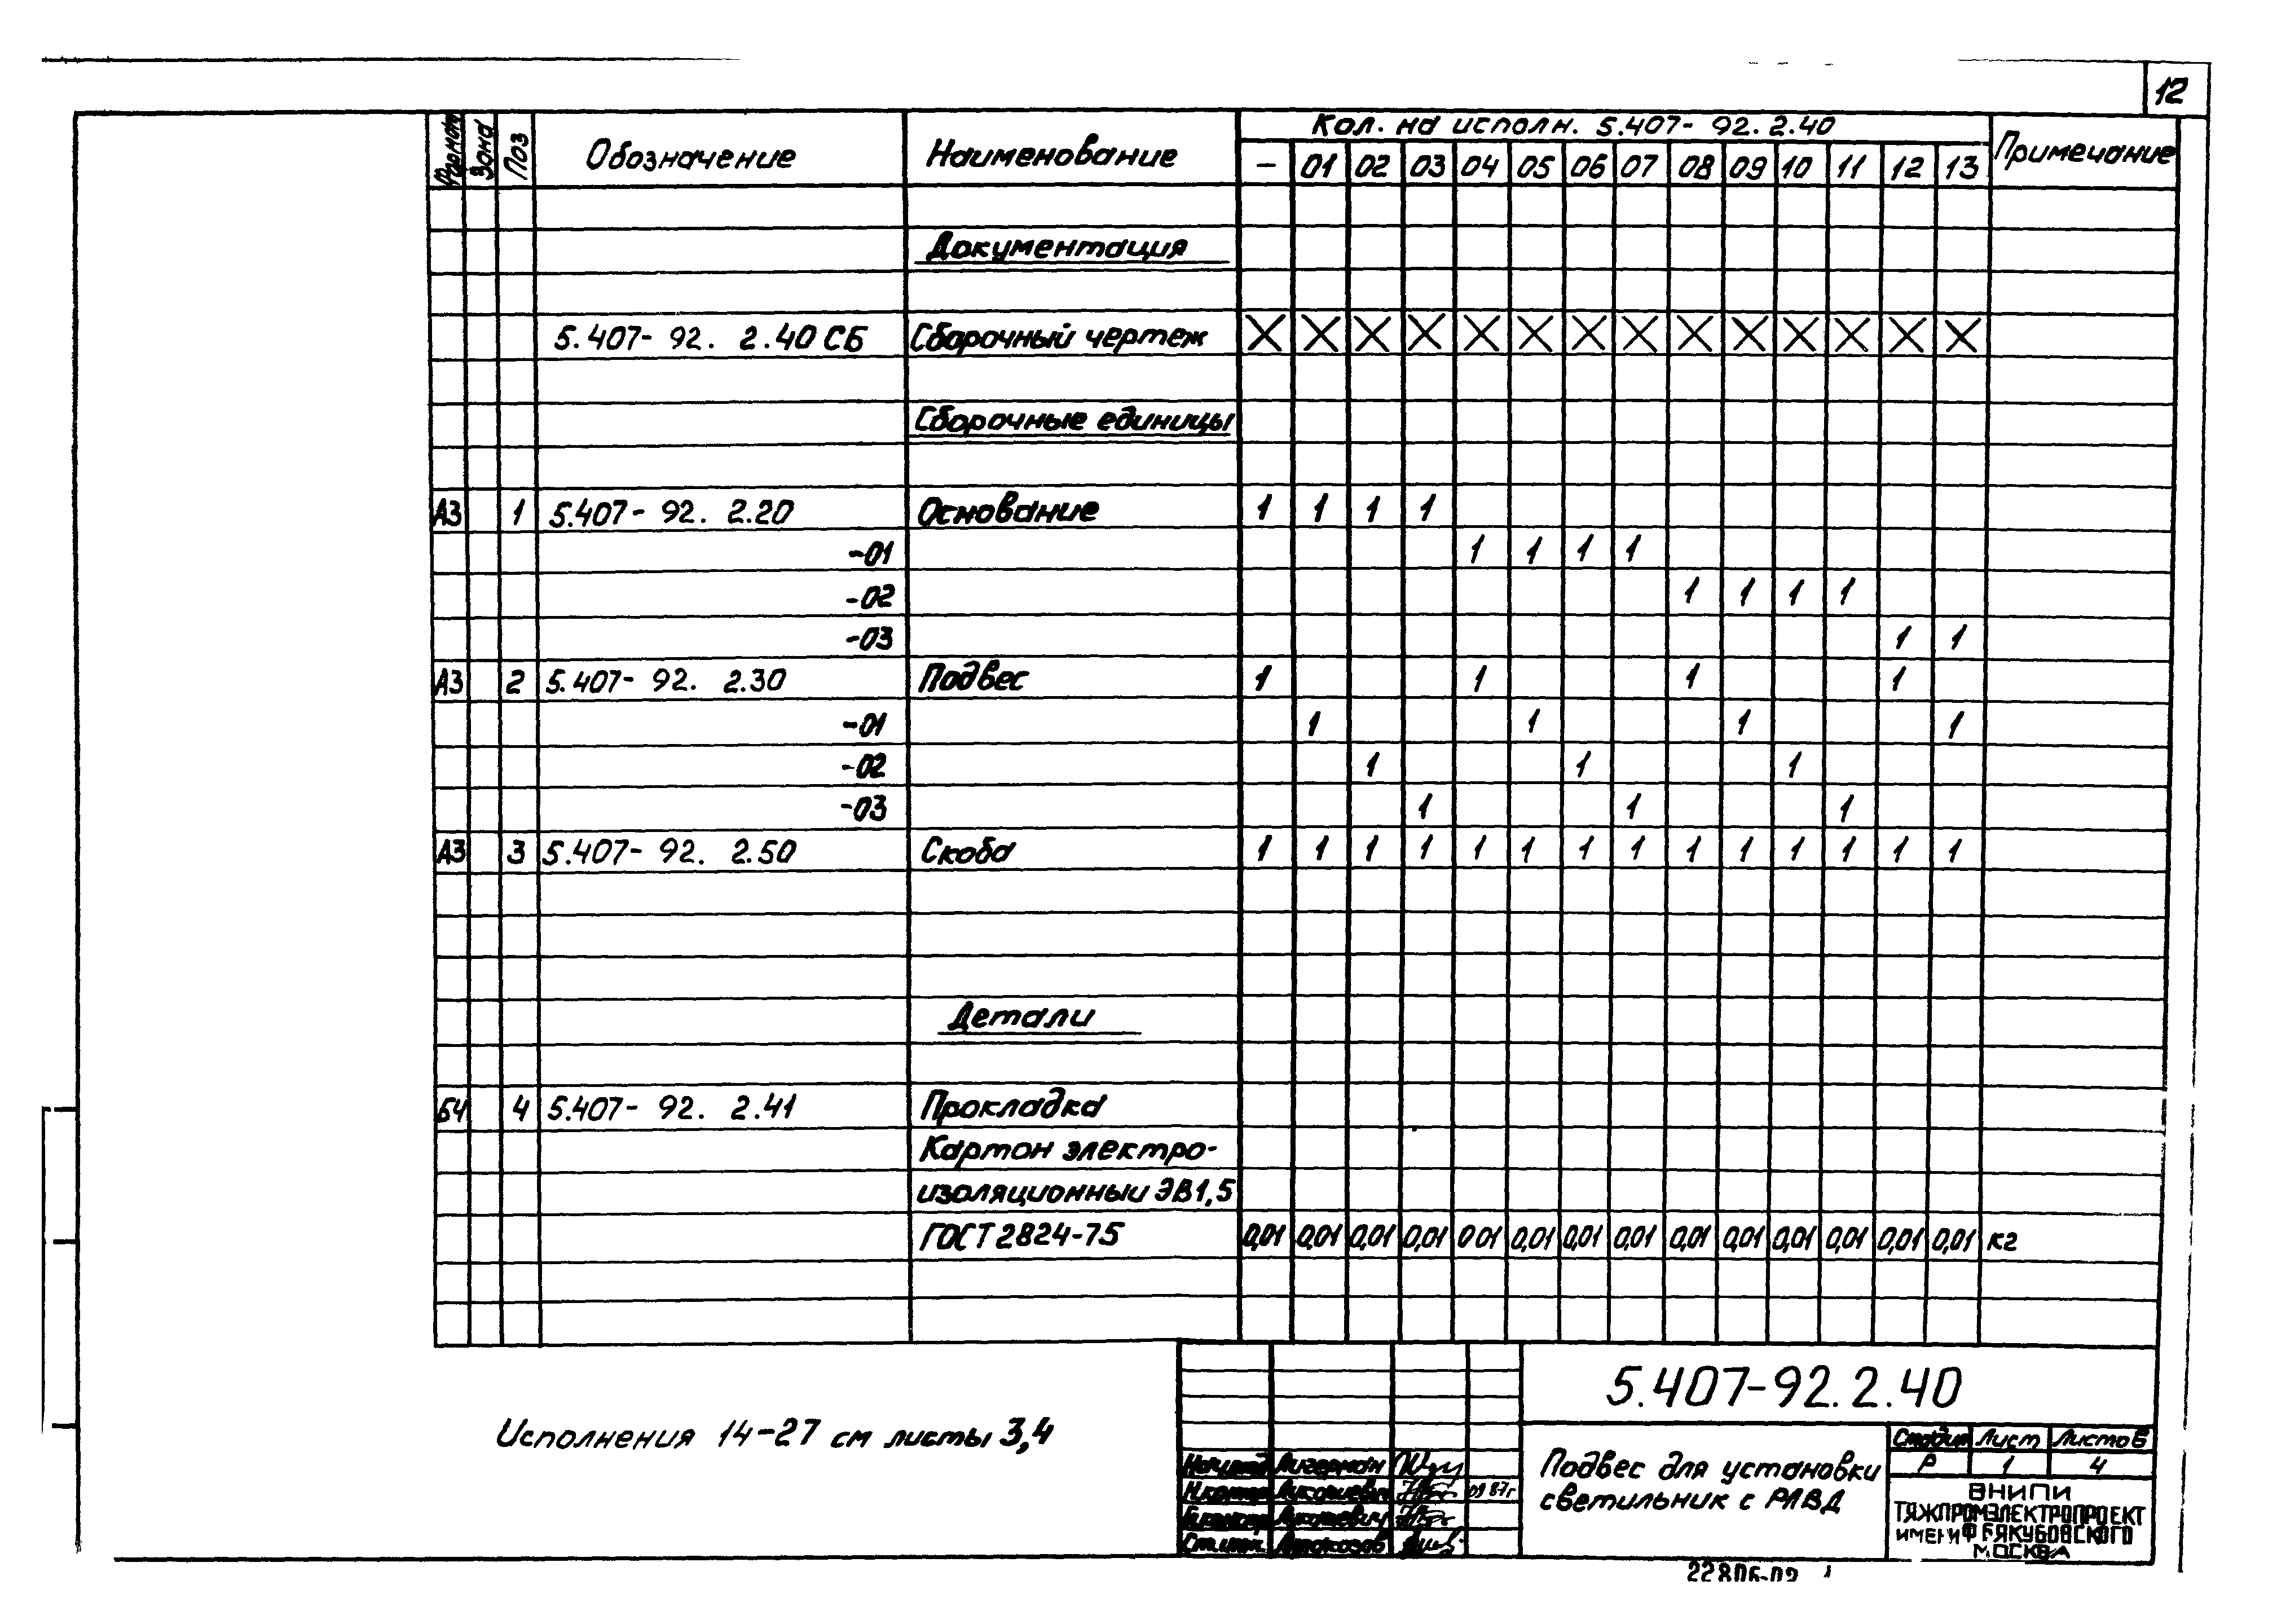 12
Формат Зона Поз Обозначение Наименование Кол. на исполн. 5.407-92.2.40 Примечание
– 01 02 03 04 05 06 07 08 09 10 11 12 13
Документация
5.407-92. 2.40 СБ Сборочный чертеж X X X X X X X X X X X X X X
Сборочные единицы
А3 1 5.407-92. 2.20 Основание 1 1 1 1
-01 1 1 1 1
-02 1 1 1 1
-03 1 1
А3 2 5.407-92. 2.30 Подвес 1 1 1 1
-01 1 1 1 1
-02 1 1 1
-03 1 1 1
А3 3 5.407-92. 2.50 Скоба 1 1 1 1 1 1 1 1 1 1 1 1 1 1
Детали
БЧ 4 5.407-92. 2.41 Прокладка
Картон электро-
изоляционный ЭВ1,5
ГОСТ 2824-75 0,01 0,01 0,01 0,01 0 01 0,01 0,01 0,01 0,01 0,01 0,01 0,01 0,01 0,01 кг
Исполнения 14-27 см листы 3,4
5.407-92.2.40
Подвес для установки
светильник с РЛВД
Стадия Лист Листов
Р 1 4
09 87г
ВНИПИ
ТЯЖПРОМЭЛЕКТРОПРОЕКТ
ИМЕНИ Ф Б ЯКУБОВСКОГО
МОСКВА
22806-02